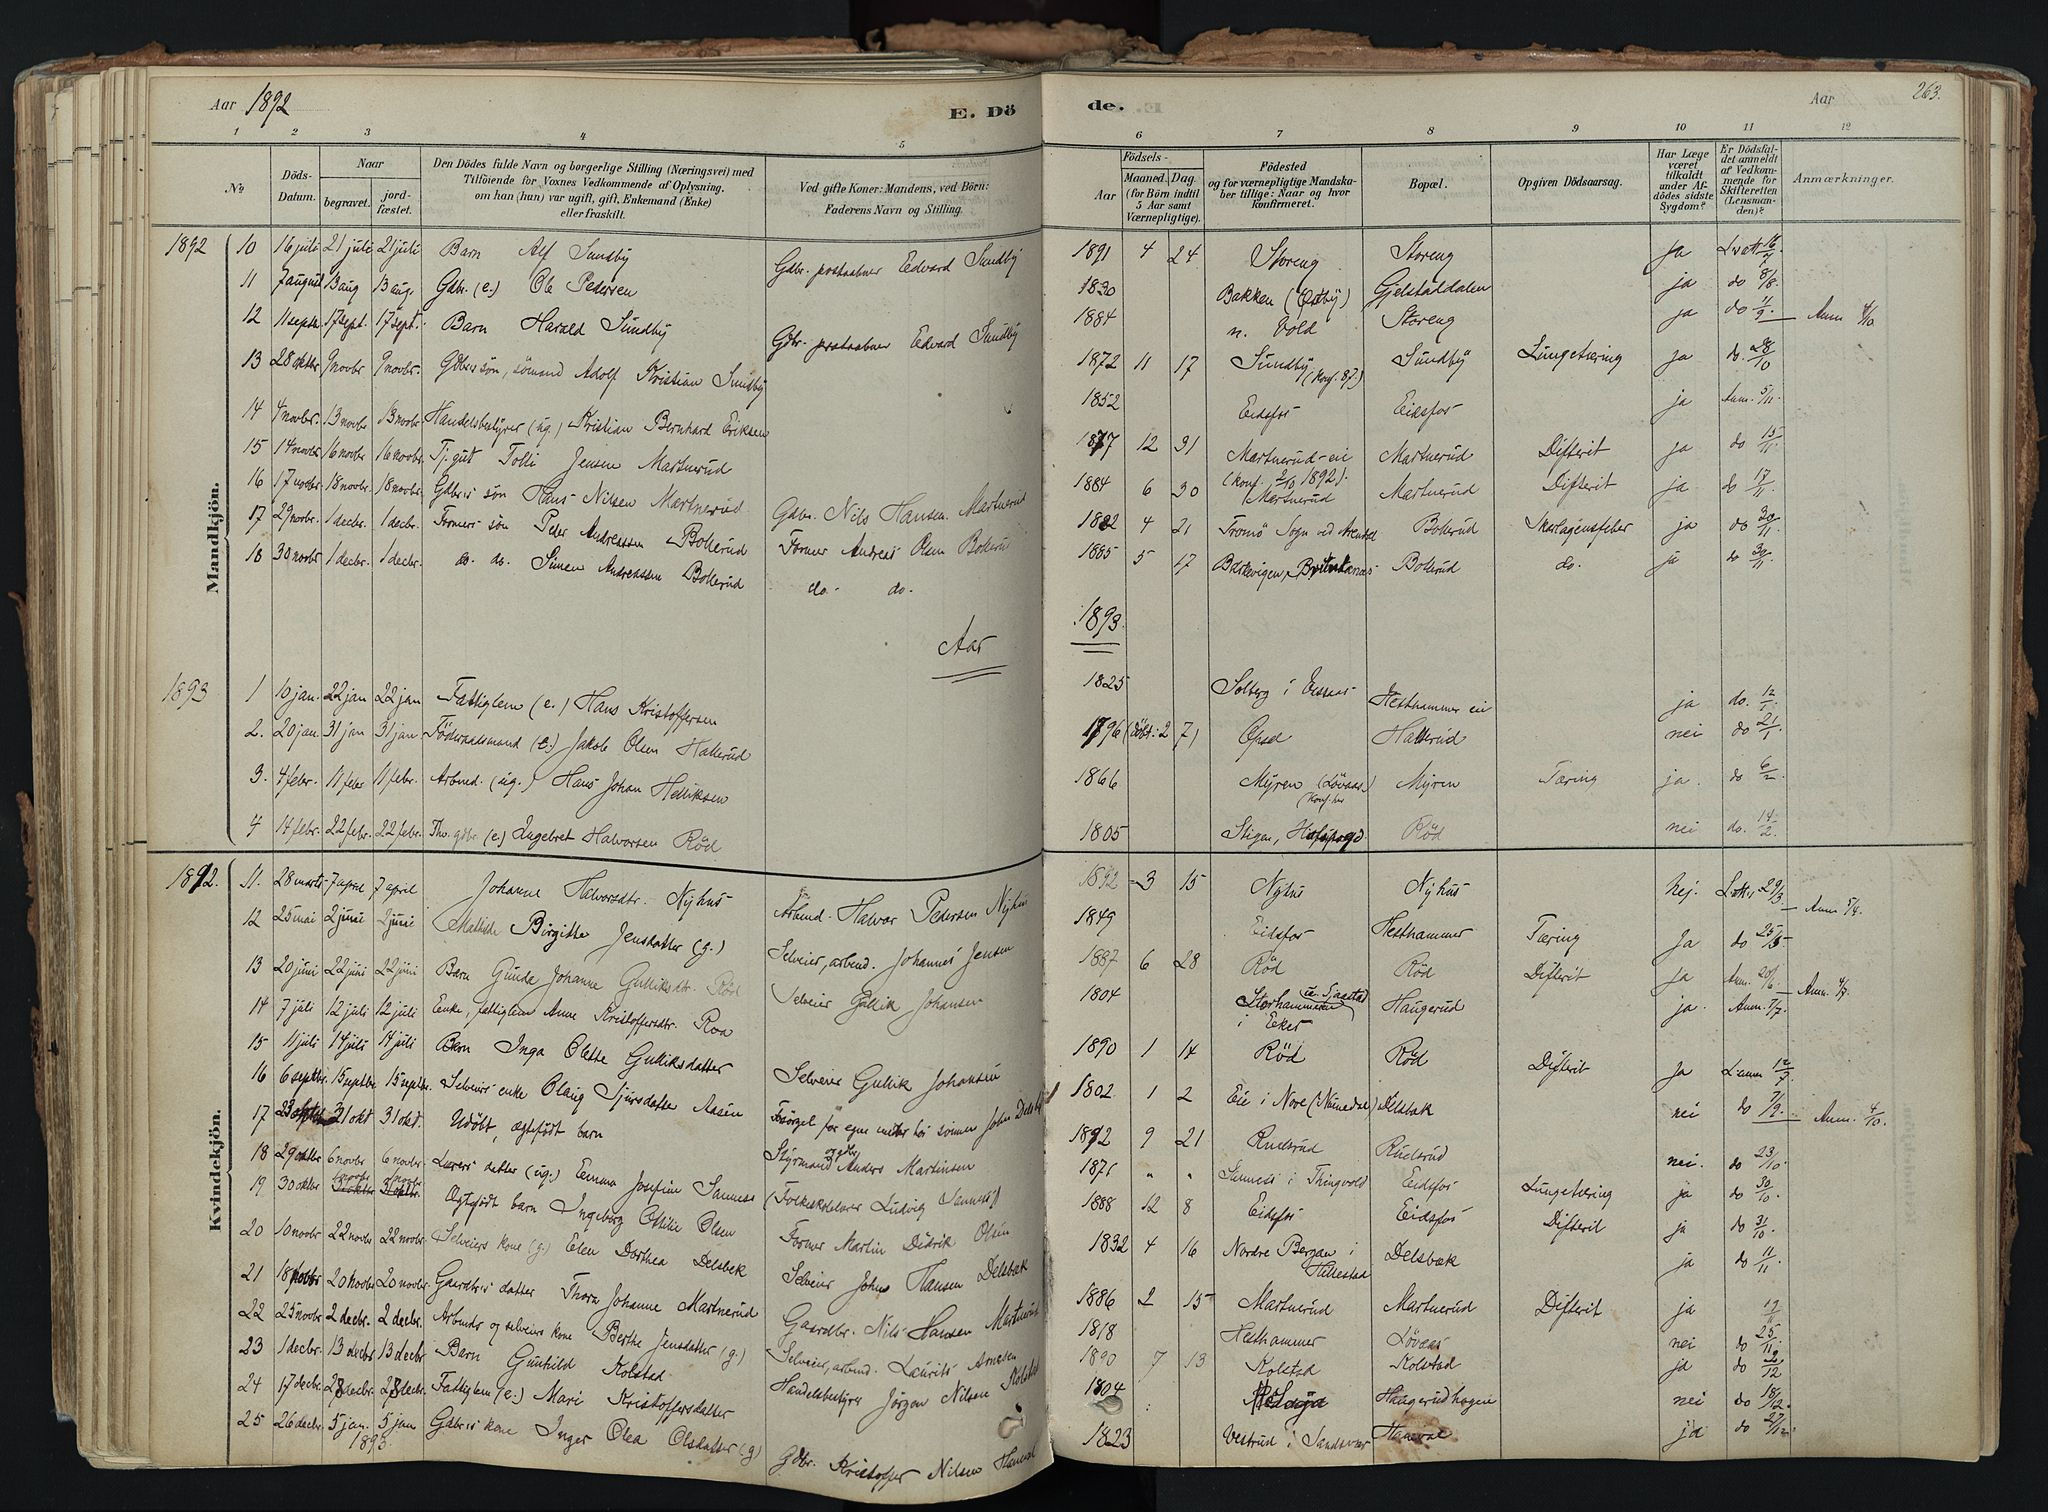 Aar 1892
E. Dö
de.
Aar
263.
1 2 3 4 5 6 7 8 9 10 11 12
No
Döds-Datum.
Naar
begravet.
jord-fæstet.
Den Dödes fulde Navn og borgerlige Stilling (Næringsvei) med
Tilföiende for Voxnes Vedkommende af Oplysning.
om han (hun) var ugift, gift, Enkemand (Enke)
eller fraskilt.
Ved gifte Koner: Mandens, ved Börn:
Faderens Navn og Stilling.
Födsels-
Aar
Maaned. Dag.
(for Börn indtil
5 Aar samt
Værnepligtige).
Födested
og for værnepligtige Mandska-
ber tillige: Naar og hvor
konfirmeret.
Bopæl.
Opgiven Dödsaarsag.
Har Læge
været
tilkaldt
under Af-
dödes sidste
Sygdom?
Er Dödsfal-
det anmeldt
af Vedkom-
mende for
Skifteretten
(Lensman-
den)?
Anmærkninger.
Mandkjön.
1892 10 16 juli 21 juli 21 juli Barn Alf Sundby Gdbr. postaabner Edvard Sundby 1891 4 24 Storeng Storeng ja 16/7
11 7 august 13 aug 13 aug. Gdbr. (e.) Ole Pedersen 1830 Bakken (Östby) Gjelstaddalen ja do 8/8
12 11 septbr 17 sept. 17 sept. Barn Harald Sundby Gdbr. postaabner Edvard Sundby 1884 n. Vold Storeng ja do 11/9 Anm. 4/10.
13 28 oktbr 9 novbr 9 novbr. Gdbrs sön, sömand Adolf Kristian Sundby 1872 11 17 Sundby (Konf. 87.) Sundby Lungetæring ja do. 28/10
14 4 novbr. 13 novbr 13 novbr. Handelsbestyrer (ug.) Kristian Bernhard Eriksen 1852 Eidsfos Eidsfos ja Anm. 5/11.
15 14 novbr. 16 novbr. 16 novbr. Tj. gut Tolli Jensen Martnerud 1877 12 31 Martnerud-eie (Konf. 2/10 1892). Martnerud Difterit ja do 15/11.
16 17 novbr. 18 novbr. 18 novbr. Gdbrs sön Hans Nilsen Martnerud Gdbr. Nils Hansen Martnerud 1884 6 30 Martnerud Martnerud Difterit ja do 17/11.
17 29 novbr. 1 decbr. 1 decbr. Formers sön Peder Andreassen Bollerud Former Andreas Olsen Bollerud 1882 4 21 Tromö Sogn ved Arendal Bollerud Skarlagensfeber ja do 30/11
18 30 novbr 1 decbr. 1 decbr. do. do. Simen Andreassen Bollerud do. do. 1885 5 17 Bollerud do. ja do 30/11
Aar 1893.
1893 1 10 jan. 22 jan 22 jan Fattiglem (e.) Hans Kristoffersen 1825 Solberg i Hesthammer eie ja do. 12/1.
2. 20 jan. 31 jan 31 jan. Föderaadsmand (e.) Jakob Olsen Hallerud 1796 (döbt: 2 7) Opsal Hallerud nei do 21/1
3. 4 febr. 11 febr 11 febr. Arbmd. (ug.) Hans Johan Helliksen 1866 Myren (Lövaas.) Myren Tæring ja. do 6/2
4 14 febr. 22 febr. 22 febr. gdbr (e.) Ingebret Halvorsen Röd 1805 Stigen, Röd nei do. 14/2.
Kvindekjön.
1892. 11. 28 marts 7 april 7 april Johanne Halvorsdtr. Nyhus Arbmd. Halvor Pedersen Nyhus 1892 3 15 Nyhus Nyhus nej. 29/3. Anm 5/4.
12 25 mai 2 juni 2 juni Mathilde Birgitte Jensdatter (g.) Selveier, arbmd. Johannes Jensen 1849 Eidsfos Hesthammer Tæring Ja do 25/5
13 20 juni 22 juni 22 juni Barn Gunda Johanne Gulliksdtr. Röd Selveier Gullik Johansen 1887 6 28 Röd Röd Difterit ja Anm. 20/6. Anm. 4/7.
14 7 juli 12 juli 12 juli Enke, fattiglem Anne Kristoffersdtr. Roa 1804 Storhammeren i Eker Haugerud ja. Anm. 7/7.
15 11 juli 14 juli 14 juli Barn Inga Olette Gulliksdatter Selveier Gullik Johansen 1890 1 14 Röd Röd Difterit Ja 12/7
16 6 septbr. 15 septbr 15 septbr. Selveiers enke Olaug Sjursdatter Aasen 1802 1 2 Eie i Nore (Numedal) Delsbæk nei do 7/9. Anm. 4/10.
17 31 okt 31 okt. Udöbt, ægtefödt barn Styrmand Anders Martinsen 1892 9 21 Ruelsrud Ruelsrud nei. do 23/10.
18 29 oktbr 6 novbr 6 novbr. Lærers datter (ug.) Emma Josefine Sanness (Folkeskolelærer Ludvig Sanness) 1871 " " Sanness i Thingvold Eidsfos Lungetæring ja do 30/10.
19 30 oktbr Ægtefödt barn Ingeborg Ottilie Olsen Former Martin Didrik Olsen 1888 12 8 Eidsfos Eidsfos Difterit ja do 31/10.
20 10 novbr 22 novbr 22 novbr. Selveiers kone (g.) Elen Dorthea Delsbæk Selveier Johns Hansen Delsbæk 1832 4 16 Nordre Bergan i Hillestad Delsbæk ja do 11/11
21 18 novbr 20 novbr 20 novbr. Gaardbrs datter Thora Johanne Martnerud Gaardbr. Nils Hansen Martnerud 1886 2 15 Martnerud Martnerud Difterit ja
22 25 novbr 2 decbr. 2 decbr. Arbmds og selveiers kone Berthe Jensdatter (g.) Selveier, arbmd. Laurits Arnesen 1818 Hesthammer Lövaas nei do 25/11.
23 1 decbr. 13 decbr 13 decbr Barn Gunhild Kolstad Handelsbestyrer Jörgen Nilsen Kolstad 1890 7 13 Kolstad Kolstad ja do 2/12
24 17 decbr. 28 decbr. 28 decbr. Fattiglem (e.) Mari Kristoffersdatter 1804 Haugerudhagen nei do 18/12.
25 26 decbr 5 jan. 1893. 5 jan Gdbrs kone Inger Olea Olsdatter (g) Gdbr. Kristoffer Nilsen Haneval 1823 Vestrud i Sandsvær Haneval ja do 27/12.